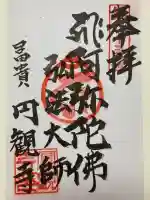 奉拝
弥阿弥陀佛
弘法大師
富貴
円観寺